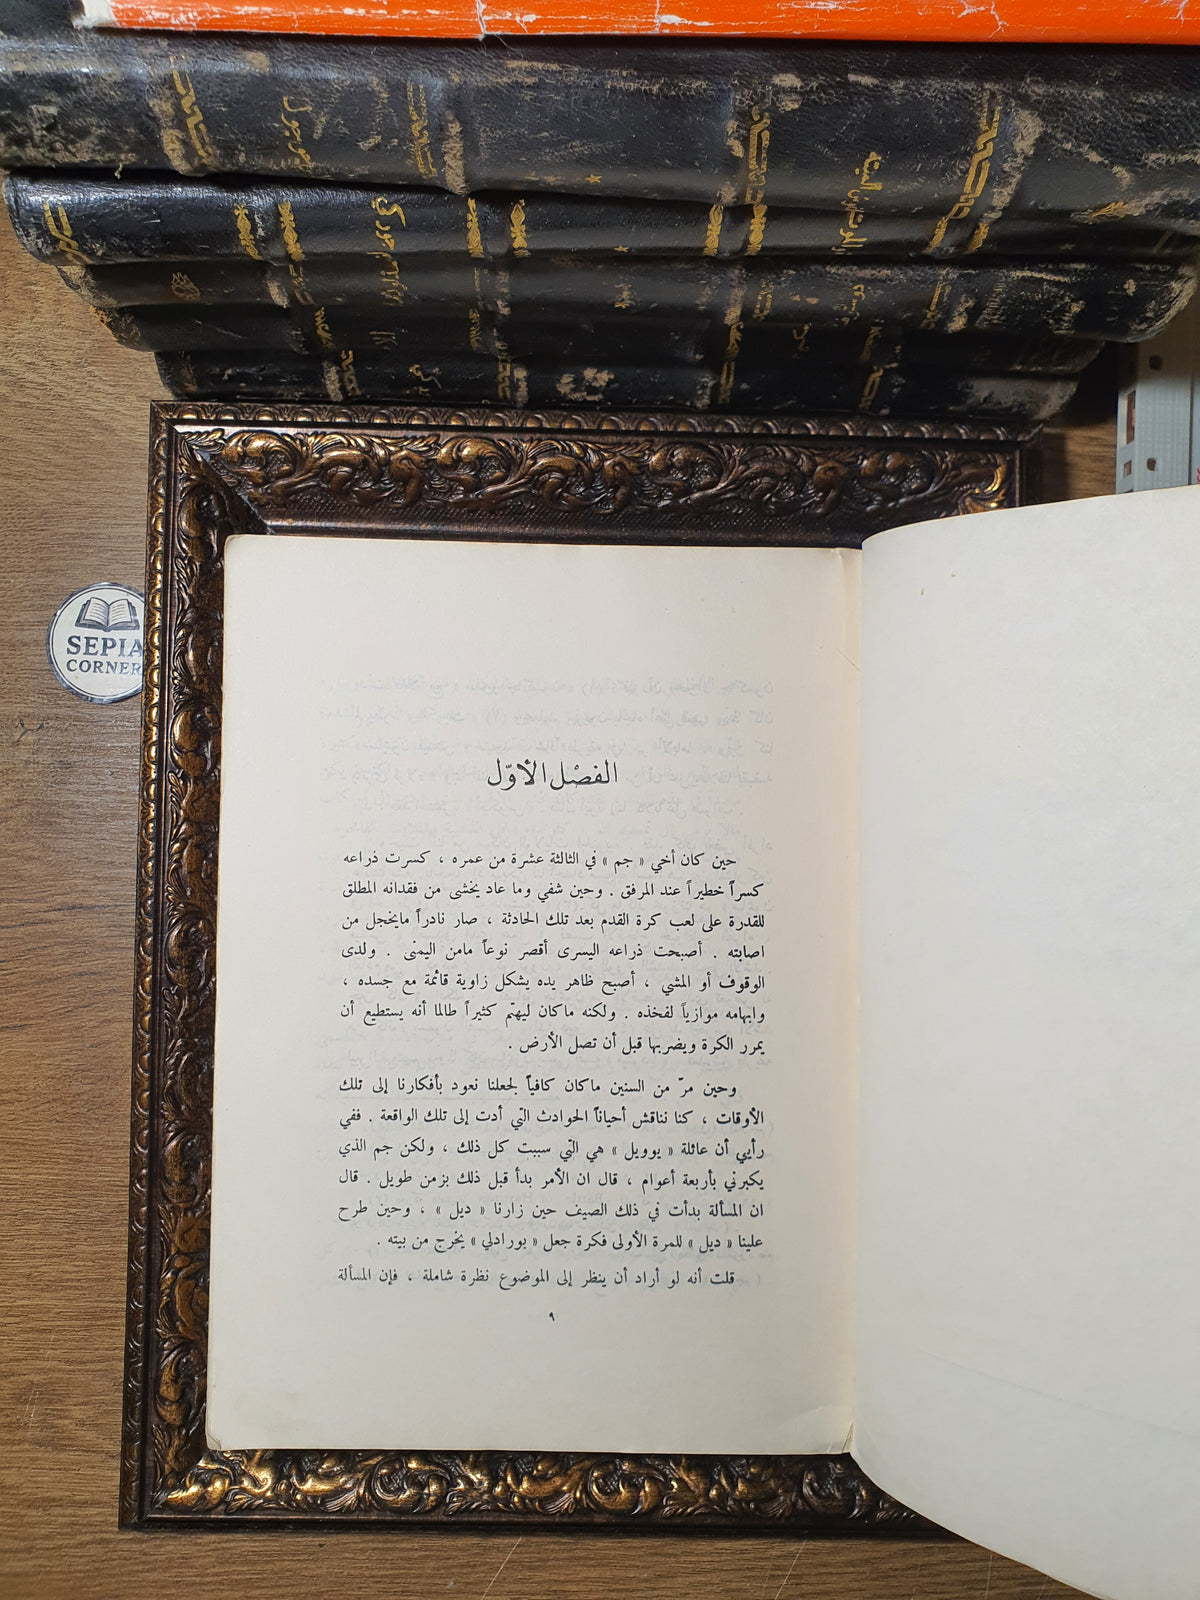 SEPIA
CORNER
الفصْل الأوّل
حين كان أخي « جم » في الثالثة عشرة من عمره ، كسرت ذراعه
كسراً خطيراً عند المرفق . وحين شفي وما عاد يخشى من فقدانه المطلق
للقدرة على لعب كرة القدم بعد تلك الحادثة ، صار نادراً مايخجل من
اصابته . أصبحت ذراعه اليسرى أقصر نوعاً مامن اليمنى . ولدى
الوقوف أو المشي ، أصبح ظاهر يده يشكل زاوية قائمة مع جسده ،
وابهامه موازياً لفخذه . ولكنه ماكان ليهتم كثيراً طالما أنه يستطيع أن
يمرر الكرة ويضربها قبل أن تصل الأرض .
وحين مرّ من السنين ماكان كافياً لجعلنا نعود بأفكارنا إلى تلك
الأوقات ، كنا نناقش أحياناً الحوادث التي أدت إلى تلك الواقعة . ففي
رأيي أن عائلة « يوويل » هي التي سببت كل ذلك ، ولكن جم الذي
يكبرني بأربعة أعوام ، قال ان الأمر بدأ قبل ذلك بزمن طويل . قال
ان المسألة بدأت في ذلك الصيف حين زارنا « ديل » ، وحين طرح
علينا « ديل » للمرة الأولى فكرة جعل « بورادلي » يخرج من بيته .
قلت أنه لو أراد أن ينظر إلى الموضوع نظرة شاملة ، فإن المسألة
٩